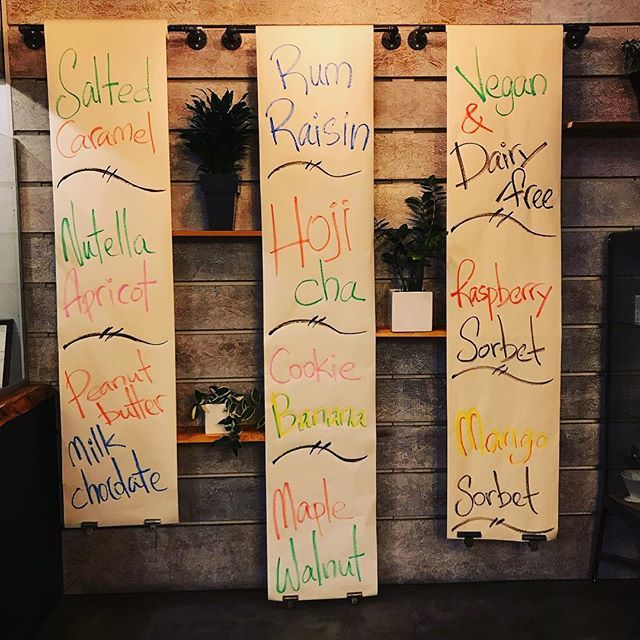 Salted
Caramel
Nutella
Apricot
Peanut
butter
Milk
chocolate
Rum
Raisin
Hoji
cha
Cookie
Banana
Maple
Walnut
Vegan
&
Dairy
free
Raspberry
Sorbet
Mango
Sorbet